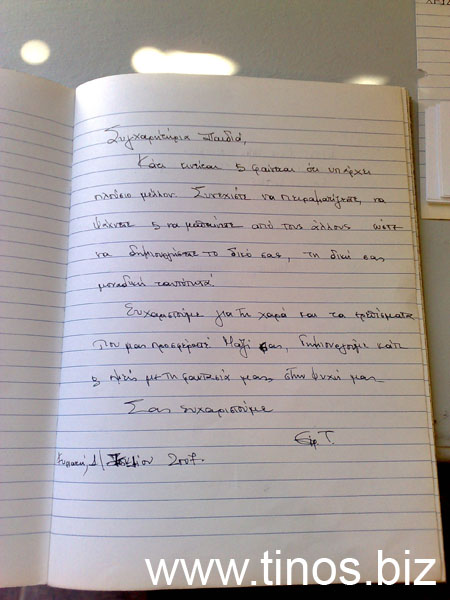 Συγχαρητήρια Παιδιά,
Κάτι κινείται & φαίνεται ότι υπάρχει
πλούσιο μέλλον. Συνεχίστε να πειραματίζεστε, να
ψάχνετε & να μαθαίνετε από τους άλλους ώστε
να δημιουργήσετε το δικό σας, τη δική σας
μοναδική ταυτότητα!
Ευχαριστούμε για τη χαρά και τα ερεθίσματα
που μας προσφέρατε! Μαζί σας, δημιουργούμε κάτι
& εμείς με τη φαντασία μας, στην ψυχή μας.
Σας ευχαριστούμε
Κυριακή, 1/ 2007.
www.tinos.biz